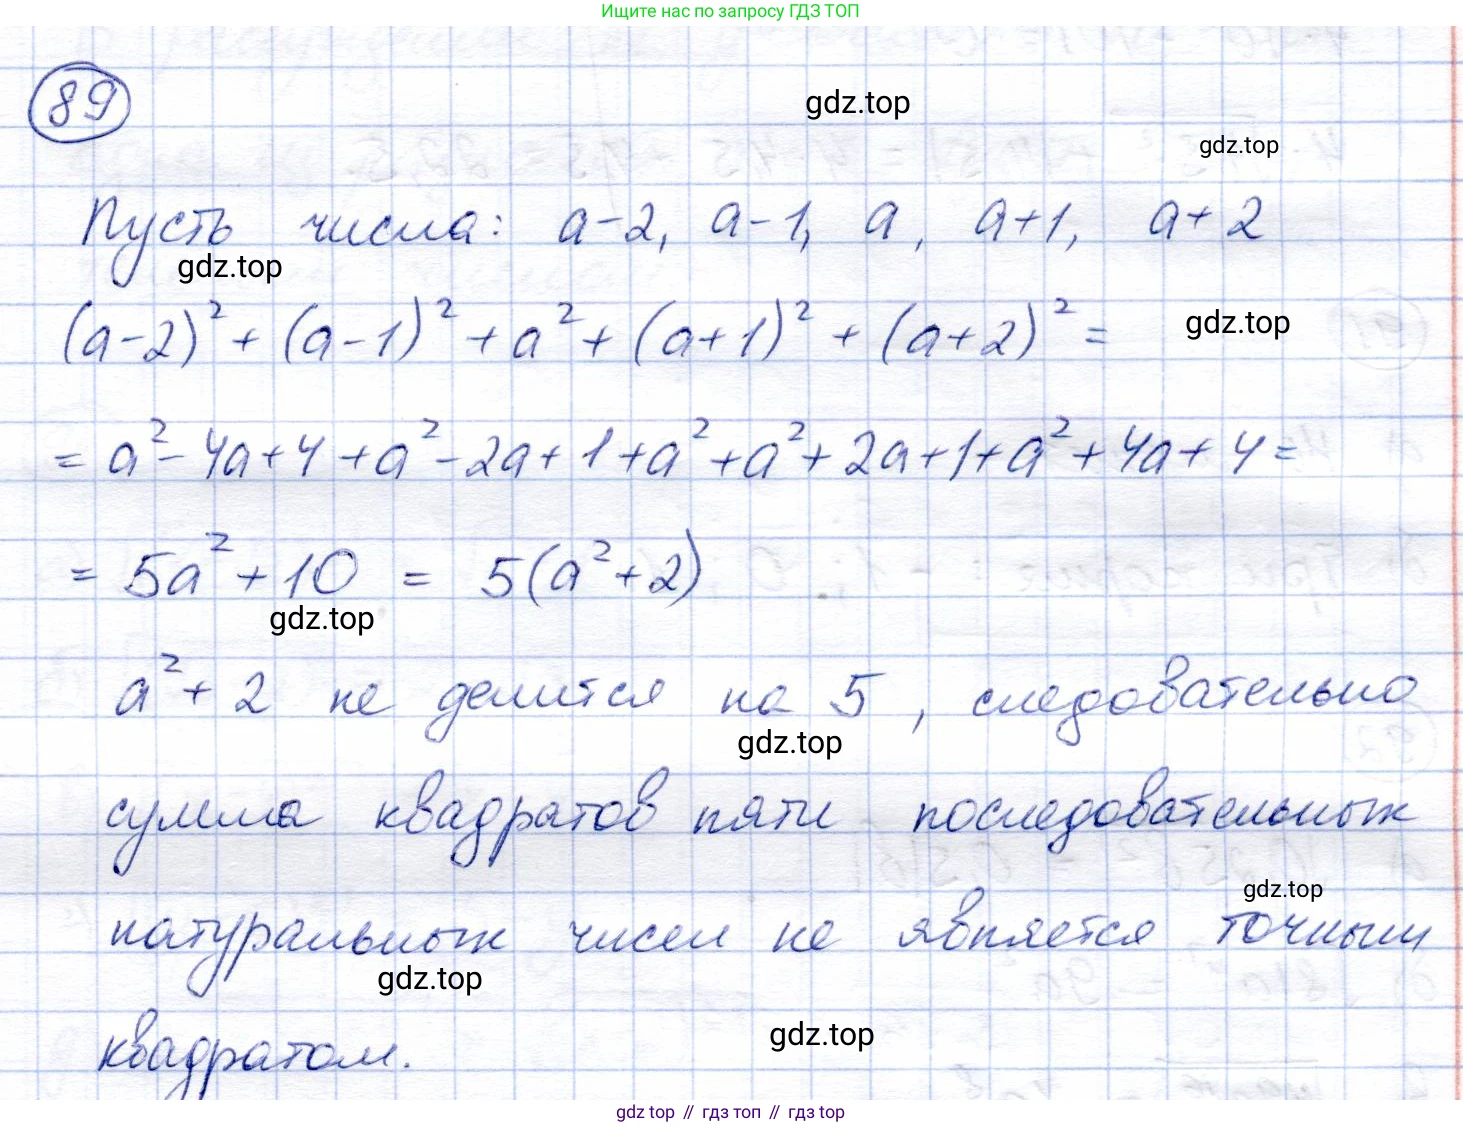 Ищите нас по запросу ГДЗ ТОП
89
gdz.top
gdz.top
Пусть числа: a-2, a-1, a, a+1, a+2
gdz.top
(a-2)² + (a-1)² + a² + (a+1)² + (a+2)² =
gdz.top
= a² - 4a + 4 + a² - 2a + 1 + a² + a² + 2a + 1 + a² + 4a + 4 =
= 5a² + 10 = 5(a² + 2)
gdz.top
a² + 2 не делится на 5, следовательно
gdz.top
сумма квадратов пяти последовательных
gdz.top
натуральных чисел не является точным
gdz.top
gdz.top
квадратом.
gdz top // гдз топ // гдз top